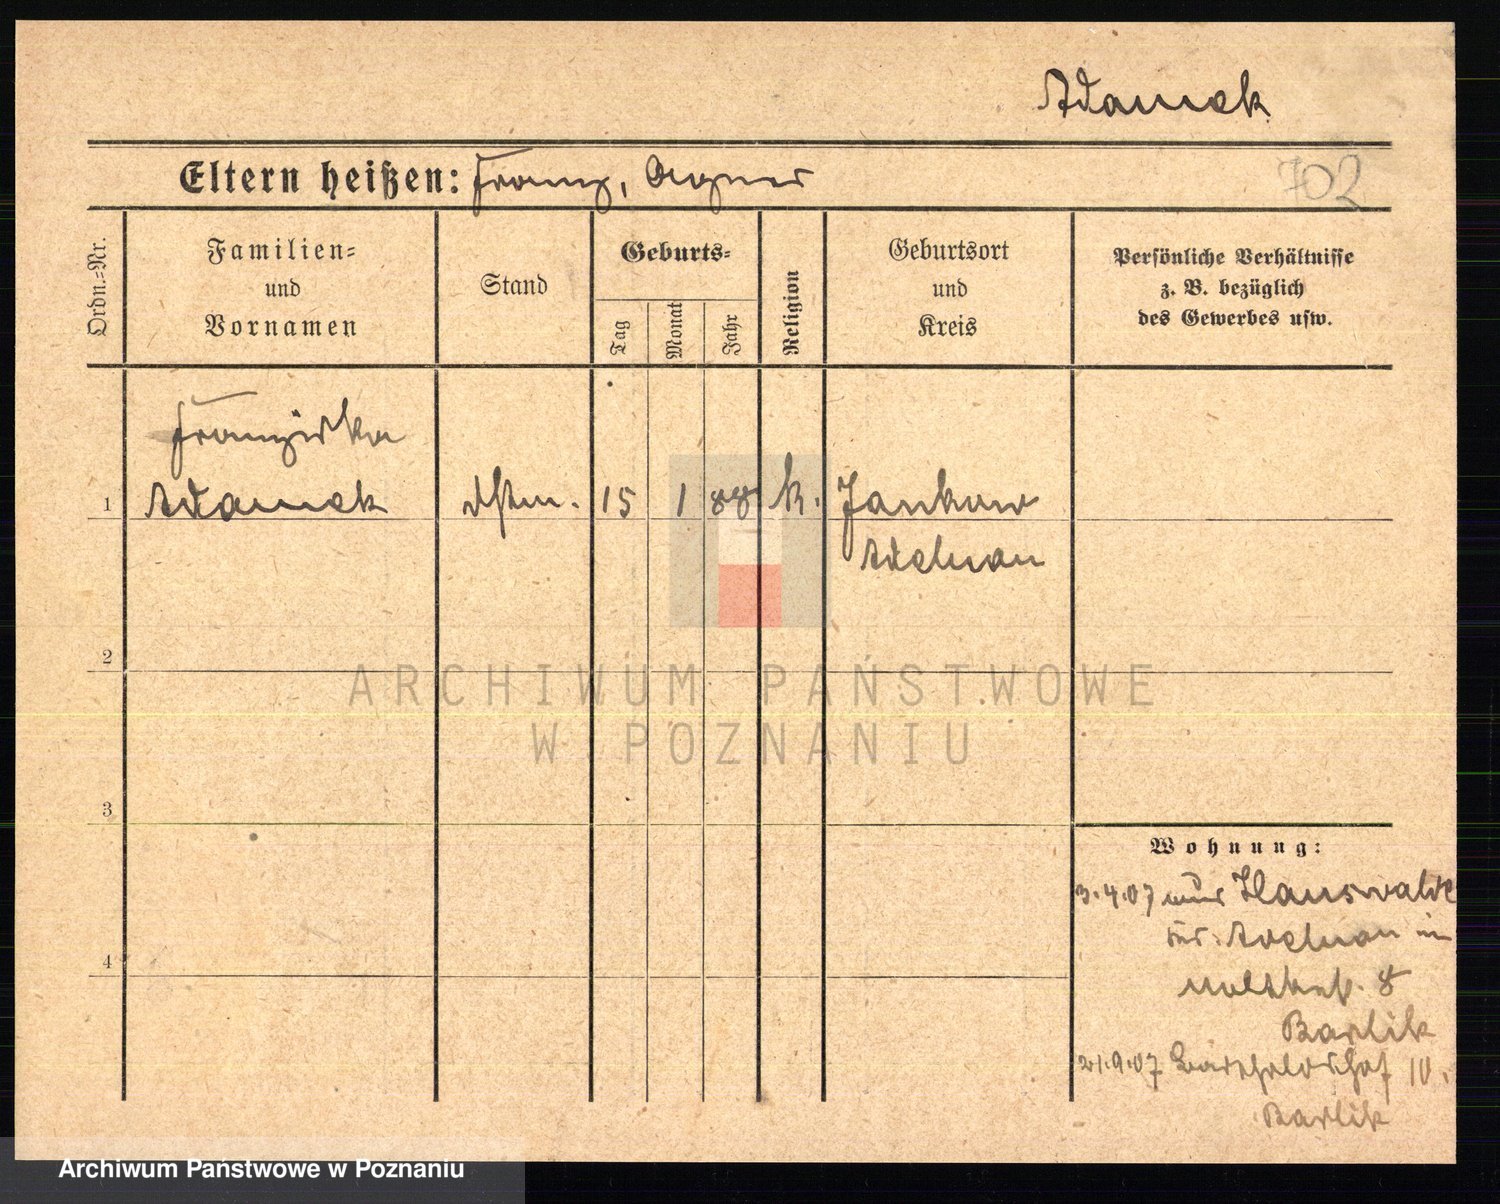 Adamek
Eltern heißen: Franz, Agnes
702
Ordn.=Nr.
Familien=
und
Vornamen
Stand
Geburts=
Tag
Monat
Jahr
Religion
Geburtsort
und
Kreis
Persönliche Verhältnisse
z. B. bezüglich
des Gewerbes usw.
Franziska
1 Adamek 15 1 88 k. Jankow
Adelnau
2
ARCHIWUM PAŃSTWOWE
W POZNANIU
3
Wohnung:
3.4.07 aus Hauswalde
Adelnau in
4
Moltkestr. 8
Barlik
21.9.07 Bartholdshof 10.
Barlik
Archiwum Państwowe w Poznaniu